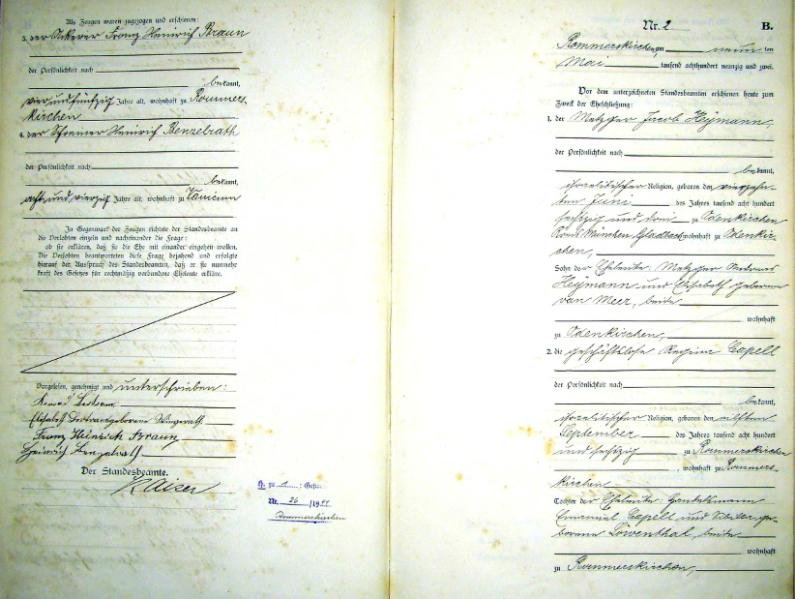 Als Zeugen waren zugezogen und erschienen:
3. der Ackerer Franz Heinrich Braun
der Persönlichkeit nach
bekannt,
vierundfünfzig Jahre alt, wohnhaft zu Rommers-
kirchen
4. der Schreiner Heinrich Benzelrath
der Persönlichkeit nach
bekannt,
achtundvierzig Jahre alt, wohnhaft zu
In Gegenwart der Zeugen richtete der Standesbeamte an
die Verlobten einzeln und nacheinander die Frage:
ob sie erklären, daß sie die Ehe mit einander eingehen wollen.
Die Verlobten beantworteten diese Frage bejahend und erfolgte
hierauf der Ausspruch des Standesbeamten, daß er sie nunmehr
kraft des Gesetzes für rechtmäßig verbundene Eheleute erkläre.
Vorgelesen, genehmigt und unterschrieben:
Elisabeth geborene
Franz Heinrich Braun
Heinrich Benzelrath
Der Standesbeamte.
Kaiser
Nr. 26 /19
Rommerskirchen
Nr. 2
B.
Rommerskirchen, am neun ten
Mai tausend achthundert neunzig und zwei.
Vor dem unterzeichneten Standesbeamten erschienen heute zum
Zweck der Eheschließung:
1. der Metzger Jacob Heymann,
der Persönlichkeit nach
bekannt,
israelitischer Religion, geboren den vierzehn-
ten Juni des Jahres tausend acht hundert
sechzig und drei zu Odenkirchen
Kreis München Gladbach wohnhaft zu Odenkir-
chen,
Sohn der Eheleute: Metzger
Heymann und Elisabeth geborene
van Meer, beide
wohnhaft
zu Odenkirchen,
2. die geschäftslose Regina Capell
der Persönlichkeit nach
bekannt,
israelitischer Religion, geboren den elften
September des Jahres tausend acht hundert
und sechzig zu Rommerskirchen
, wohnhaft zu Rommers-
kirchen
Tochter der Eheleute: Handelsmann
Emanuel Capell und ge-
borene Löwenthal, beide
wohnhaft
zu Rommerskirchen,